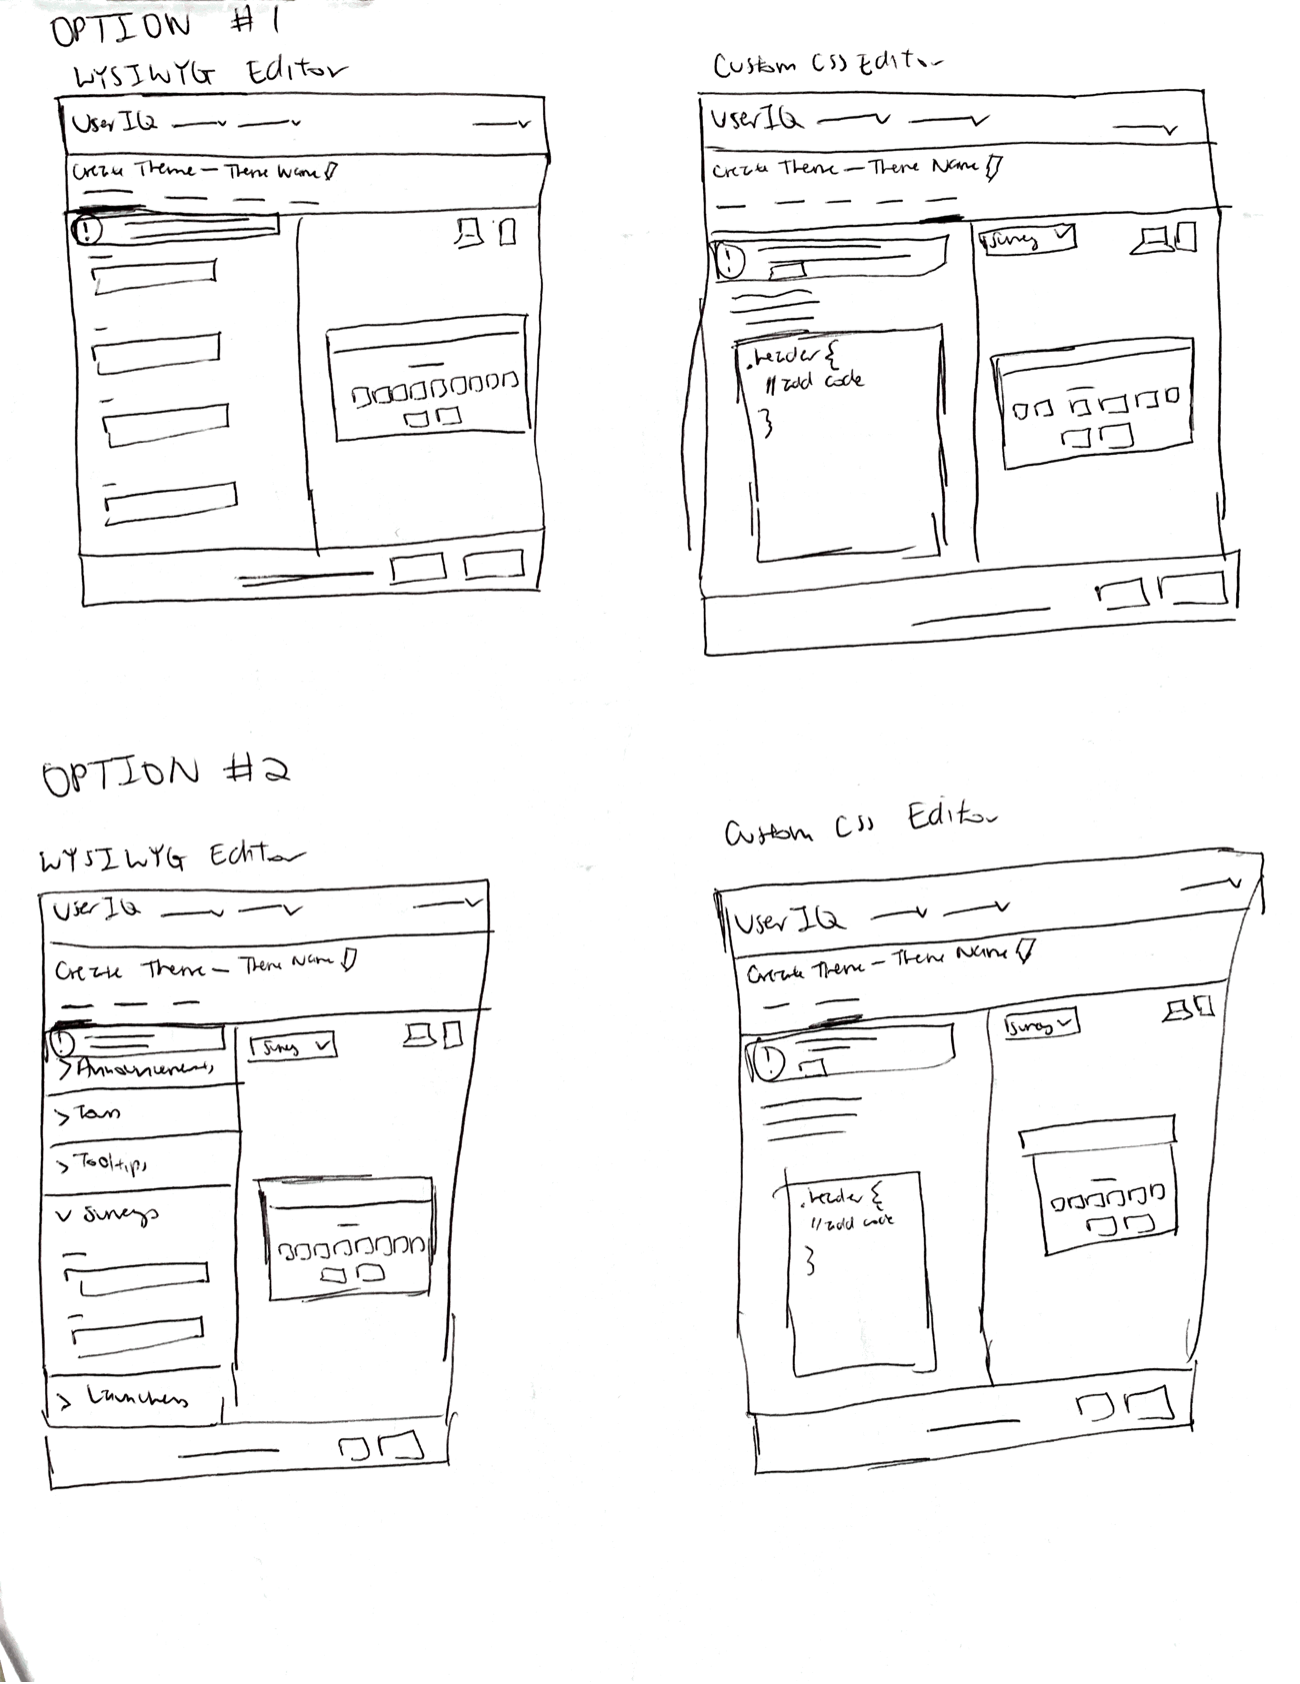 OPTION #1
WYSIWYG Editor
UserIQ
Create Theme – Theme Name
!
Custom CSS Editor
UserIQ
Create Theme – Theme Name
!
Survey
.header {
// add code
}
OPTION #2
WYSIWYG Editor
UserIQ
Create Theme – Theme Name
!
Survey
> Announcements
> Tours
> Tooltips
v Surveys
> Launchers
Custom CSS Editor
UserIQ
Create Theme – Theme Name
!
Survey
.header {
// add code
}